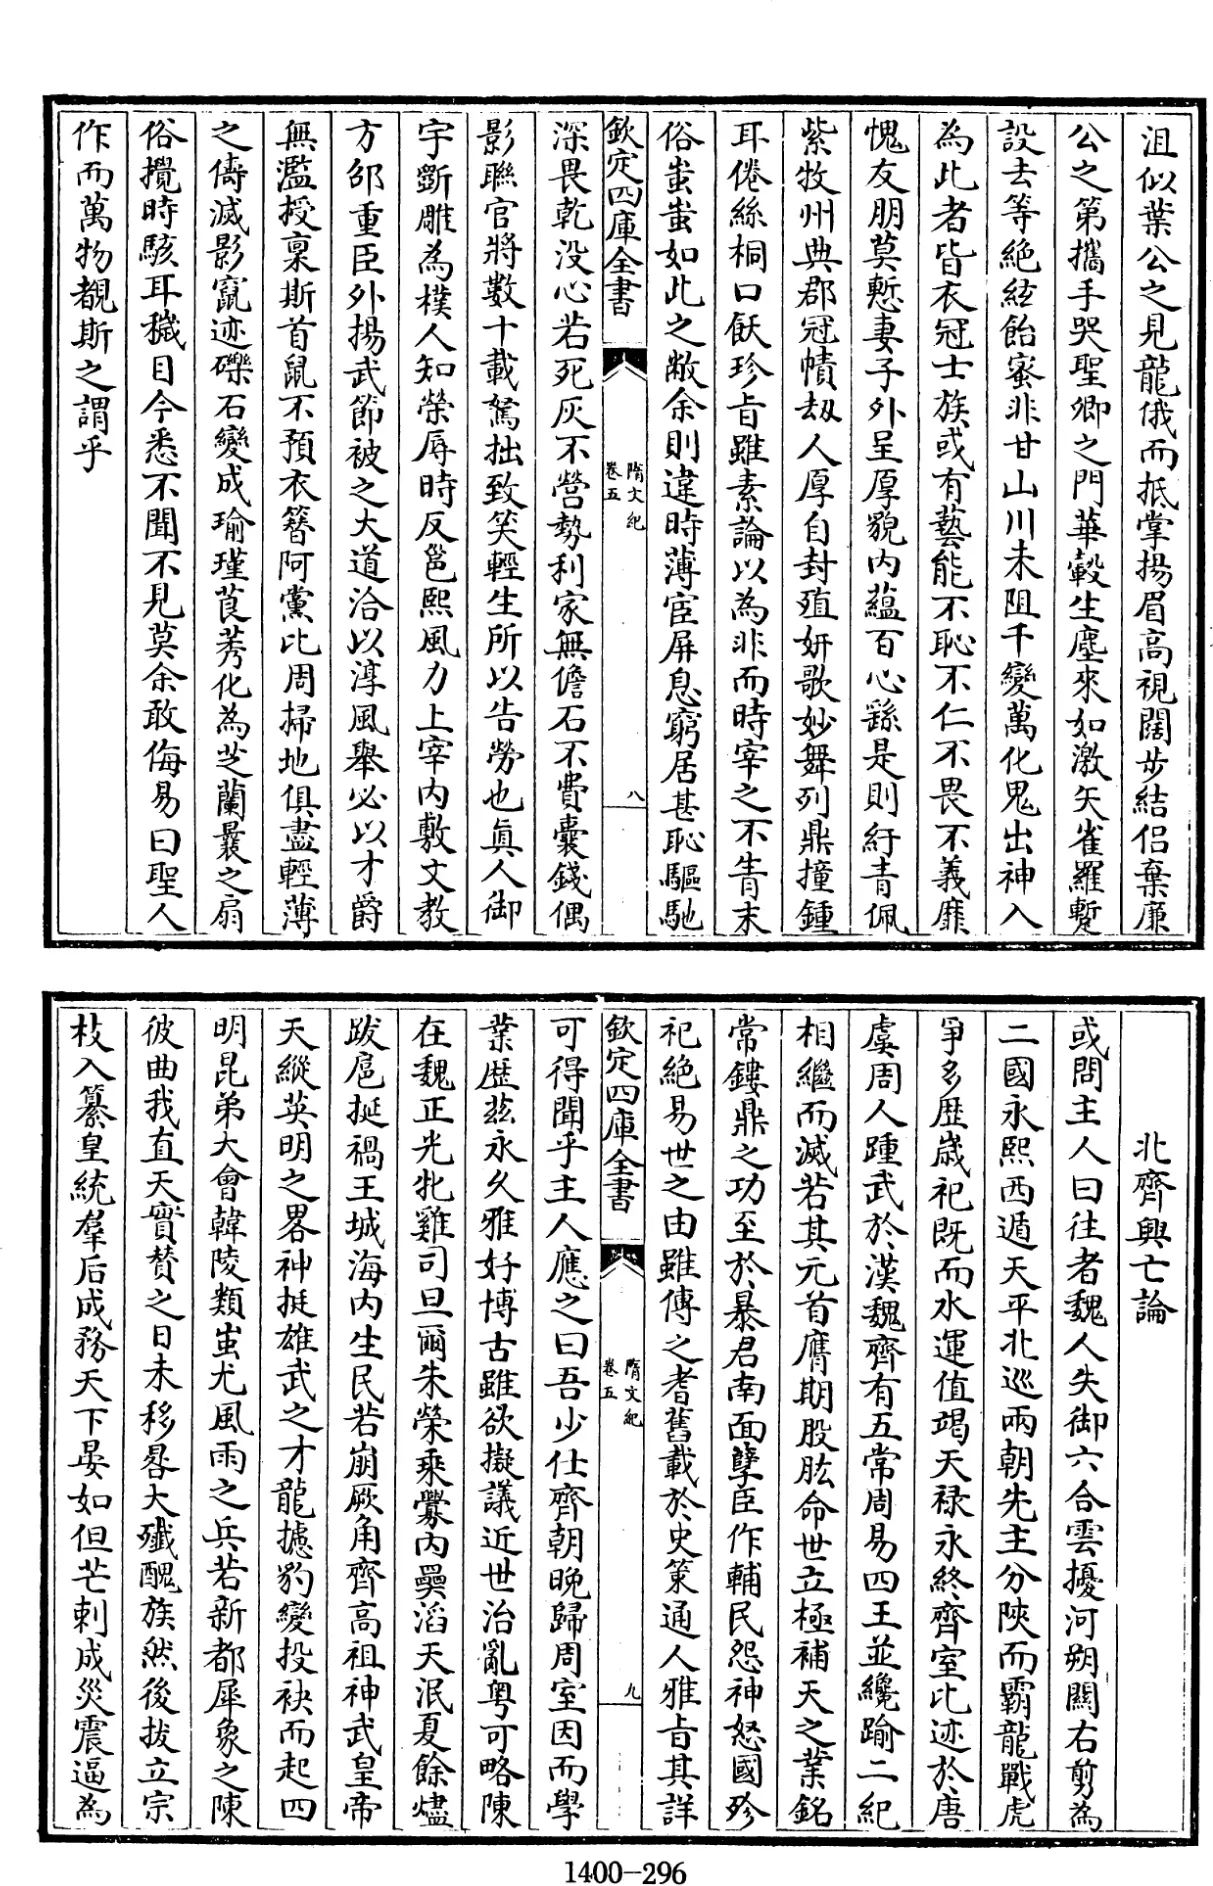 沮似葉公之見龍俄而抵掌揚眉高視闊步結侶棄廉
公之第攜手哭聖卿之門華轂生塵來如激矢雀羅蹔
設去等絶絃飴蜜非甘山川未阻千變萬化鬼出神入
為此者皆衣冠士族或有藝能不恥不仁不畏不義靡
愧友朋莫慙妻子外呈厚貌内藴百心繇是則紆青佩
紫牧州典郡冠幘刼人厚自封殖妍歌妙舞列鼎撞鍾
耳倦絲桐口飫珍㫖雖素論以為非而時宰之不責末
俗蚩蚩如此之敝余則違時薄宦屏息窮居甚恥驅馳
欽定四庫全書
隋文紀
卷五
八
深畏乾没心若死灰不營勢利家無儋石不費囊錢偶
影聯官將數十載駑拙致笑輕生所以告勞也眞人御
宇斵雕為樸人知榮辱時反邕熙風力上宰内敷文教
方邵重臣外揚武節被之大道洽以淳風舉必以才爵
無濫授稟斯首鼠不預衣簪阿黨比周掃地俱盡輕薄
之儔滅影竄迹礫石變成瑜瑾莨莠化為芝蘭曩之扇
俗攪時駭耳穢目今悉不聞不見莫余敢侮易曰聖人
作而萬物覩斯之謂乎
北齊興亡論
或問主人曰往者魏人失御六合雲擾河朔關右剪為
二國永熙西遁天平北巡兩朝先主分陜而霸龍戰虎
爭多歴歳祀既而水運值竭天禄永終齊室比迹於唐
虞周人踵武於漢魏齊有五常周易四王並纔踰二紀
相繼而滅若其元首膺期股肱命世立極補天之業銘
常鏤鼎之功至於暴君南面孽臣作輔民怨神怒國殄
祀絶易世之由雖傳之耆舊載於史策通人雅㫖其詳
欽定四庫全書
隋文紀
卷五
九
可得聞乎主人應之曰吾少仕齊朝晩歸周室因而學
業歴兹永久雅好博古雖欲擬議近世治亂粤可略陳
在魏正光牝雞司旦爾朱榮乘釁内奰滔天泯夏餘燼
跋扈挻禍王城海内生民若崩厥角齊高祖神武皇帝
天縱英明之畧神挺雄武之才龍攄豹變投袂而起四
明昆弟大會韓陵類蚩尤風雨之兵若新都犀象之陳
彼曲我直天實賛之日未移晷大殲醜族然後拔立宗
枝入纂皇統羣后成務天下晏如但芒刺成災震逼為
1400-296